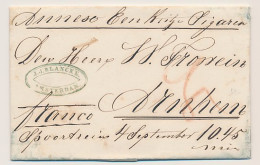 Annexo Een Kistje Sigaren
Den Heer W. Frowein
J. BLANCKE
AMSTERDAM
franco Arnhem
Spoortrein 4 September 10.45
min